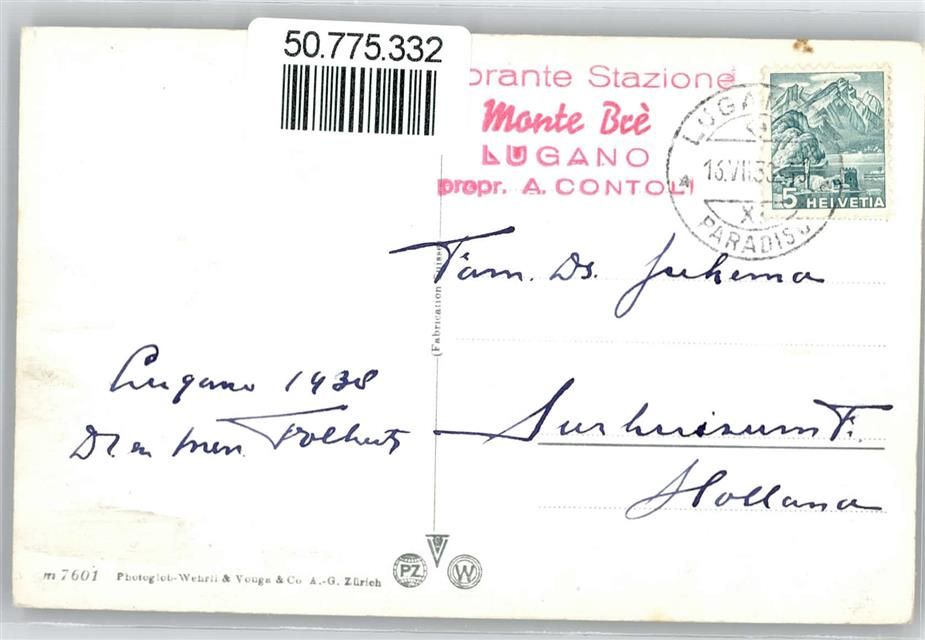 50.775.332
orante Stazione
Monte Brè
LUGANO
propr. A. CONTOLI
LUGANO
13.VII.38
PARADISO
5 HELVETIA
Fam. Ds. Jukema
(Fabrication Suisse)
Lugano 1938
Dr. en Mevr. Folkerts
Surhuizum Fr.
Holland
m 7601 Photoglob-Wehrli & Vouga & Co A.-G. Zürich
PZ
V
W